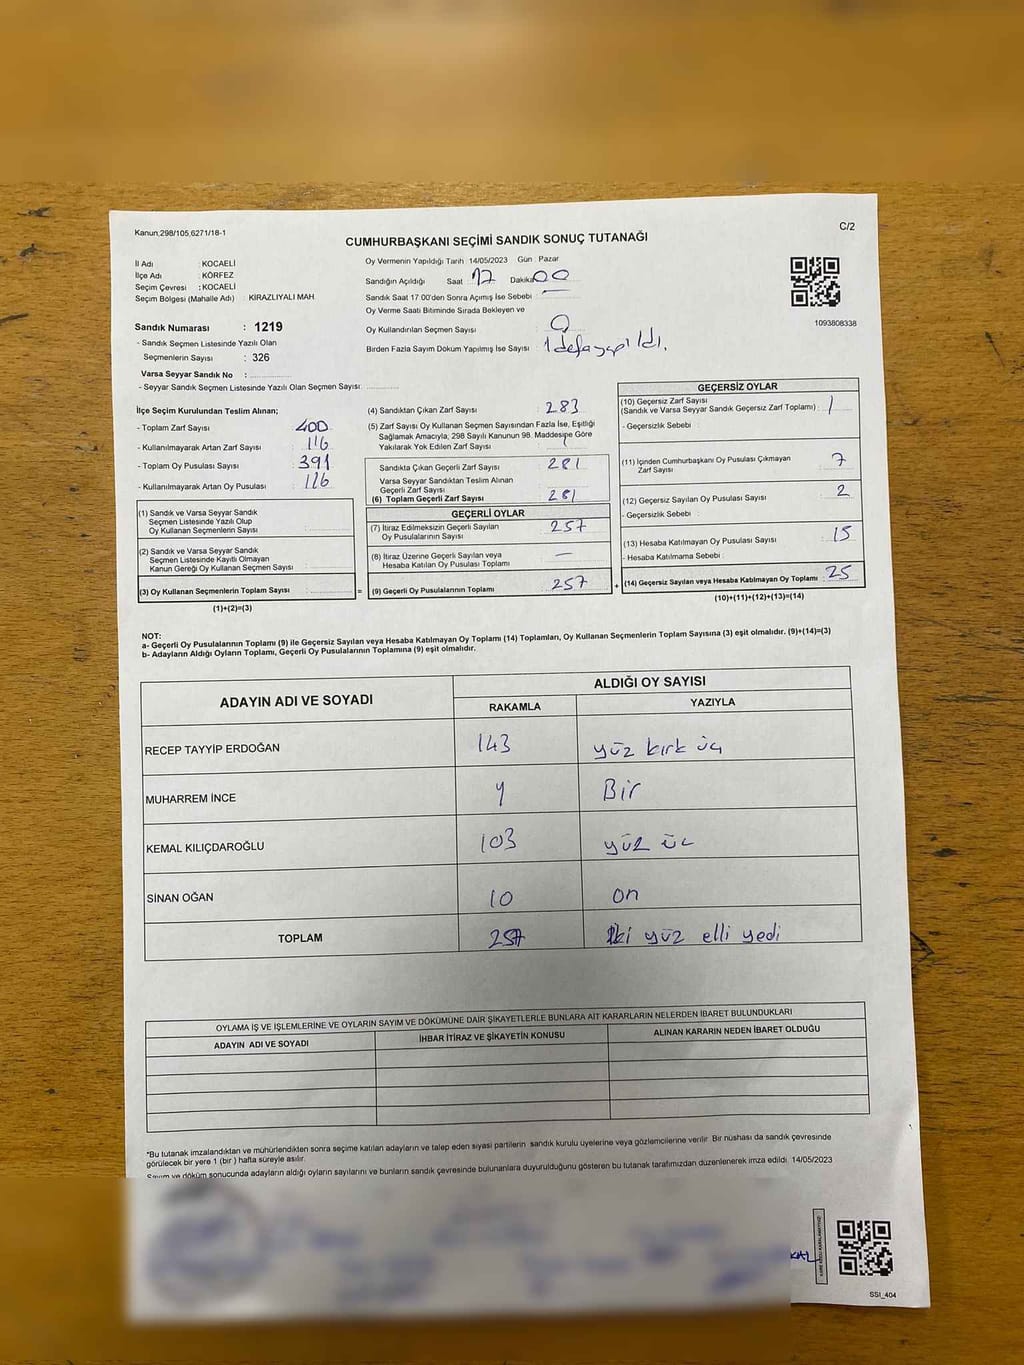 Kanun;298/105,6271/18-1
C/2
CUMHURBAŞKANI SEÇİMİ SANDIK SONUÇ TUTANAĞI
İl Adı : KOCAELİ
İlçe Adı : KÖRFEZ
Seçim Çevresi : KOCAELİ
Seçim Bölgesi (Mahalle Adı) : KİRAZLIYALI MAH
Sandık Numarası : 1219
- Sandık Seçmen Listesinde Yazılı Olan
Seçmenlerin Sayısı : 326
Varsa Seyyar Sandık No :
- Seyyar Sandık Seçmen Listesinde Yazılı Olan Seçmen Sayısı:
Oy Vermenin Yapıldığı Tarih 14/05/2023 Gün : Pazar
Sandığın Açıldığı Saat 17 Dakika 00
Sandık Saat 17 00'den Sonra Açımış İse Sebebi
Oy Verme Saati Bitiminde Sırada Bekleyen ve
Oy Kullandırılan Seçmen Sayısı : 0
Birden Fazla Sayım Döküm Yapılmış İse Sayısı : 1 defa yapıldı.
1093808338
İlçe Seçim Kurulundan Teslim Alınan;
- Toplam Zarf Sayısı : 400
- Kullanılmayarak Artan Zarf Sayısı : 116
- Toplam Oy Pusulası Sayısı : 391
- Kullanılmayarak Artan Oy Pusulası : 116
(1) Sandık ve Varsa Seyyar Sandık
Seçmen Listesinde Yazılı Olup
Oy Kullanan Seçmenlerin Sayısı :
(2) Sandık ve Varsa Seyyar Sandık
Seçmen Listesinde Kayıtlı Olmayan
Kanun Gereği Oy Kullanan Seçmen Sayısı :
(3) Oy Kullanan Seçmenlerin Toplam Sayısı : =
(1)+(2)=(3)
(4) Sandıktan Çıkan Zarf Sayısı : 283
(5) Zarf Sayısı Oy Kullanan Seçmen Sayısından Fazla İse, Eşitliği
Sağlamak Amacıyla; 298 Sayılı Kanunun 98. Maddesine Göre
Yakılarak Yok Edilen Zarf Sayısı : 1
Sandıkta Çıkan Geçerli Zarf Sayısı : 281
Varsa Seyyar Sandıktan Teslim Alınan
Geçerli Zarf Sayısı :
(6) Toplam Geçerli Zarf Sayısı : 281
GEÇERLİ OYLAR
(7) İtiraz Edilmeksizin Geçerli Sayılan
Oy Pusulalarının Sayısı : 257
(8) İtiraz Üzerine Geçerli Sayılan veya
Hesaba Katılan Oy Pusulası Toplamı : —
(9) Geçerli Oy Pusulalarının Toplamı : 257 +
GEÇERSİZ OYLAR
(10) Geçersiz Zarf Sayısı
(Sandık ve Varsa Seyyar Sandık Geçersiz Zarf Toplamı) : 1
- Geçersizlik Sebebi
(11) İçinden Cumhurbaşkanı Oy Pusulası Çıkmayan
Zarf Sayısı : 7
(12) Geçersiz Sayılan Oy Pusulası Sayısı : 2
- Geçersizlik Sebebi :
(13) Hesaba Katılmayan Oy Pusulası Sayısı : 15
- Hesaba Katılmama Sebebi :
(14) Geçersiz Sayılan veya Hesaba Katılmayan Oy Toplamı : 25
(10)+(11)+(12)+(13)=(14)
NOT:
a- Geçerli Oy Pusulalarının Toplamı (9) ile Geçersiz Sayılan veya Hesaba Katılmayan Oy Toplamı (14) Toplamları, Oy Kullanan Seçmenlerin Toplam Sayısına (3) eşit olmalıdır. (9)+(14)=(3)
b- Adayların Aldığı Oyların Toplamı, Geçerli Oy Pusulalarının Toplamına (9) eşit olmalıdır.
ADAYIN ADI VE SOYADI
ALDIĞI OY SAYISI
RAKAMLA YAZIYLA
RECEP TAYYİP ERDOĞAN 143 yüz kırk üç
MUHARREM İNCE 1 Bir
KEMAL KILIÇDAROĞLU 103 yüz üç
SİNAN OĞAN 10 on
TOPLAM 257 İki yüz elli yedi
OYLAMA İŞ VE İŞLEMLERİNE VE OYLARIN SAYIM VE DÖKÜMÜNE DAİR ŞİKAYETLERLE BUNLARA AİT KARARLARIN NELERDEN İBARET BULUNDUKLARI
ADAYIN ADI VE SOYADI İHBAR İTİRAZ VE ŞİKAYETİN KONUSU ALINAN KARARIN NEDEN İBARET OLDUĞU
*Bu tutanak imzalandıktan ve mühürlendikten sonra seçime katılan adayların ve talep eden siyasi partilerin sandık kurulu üyelerine veya gözlemcilerine verilir. Bir nüshası da sandık çevresinde
görülecek bir yere 1 (bir ) hafta süreyle asılır.
Sayım ve döküm sonucunda adayların aldığı oyların sayılarını ve bunların sandık çevresinde bulunanlara duyurulduğunu gösteren bu tutanak tarafımızdan düzenlenerek imza edildi. 14/05/2023
KARE KODU KARALAMAYINIZ!
SSI_404